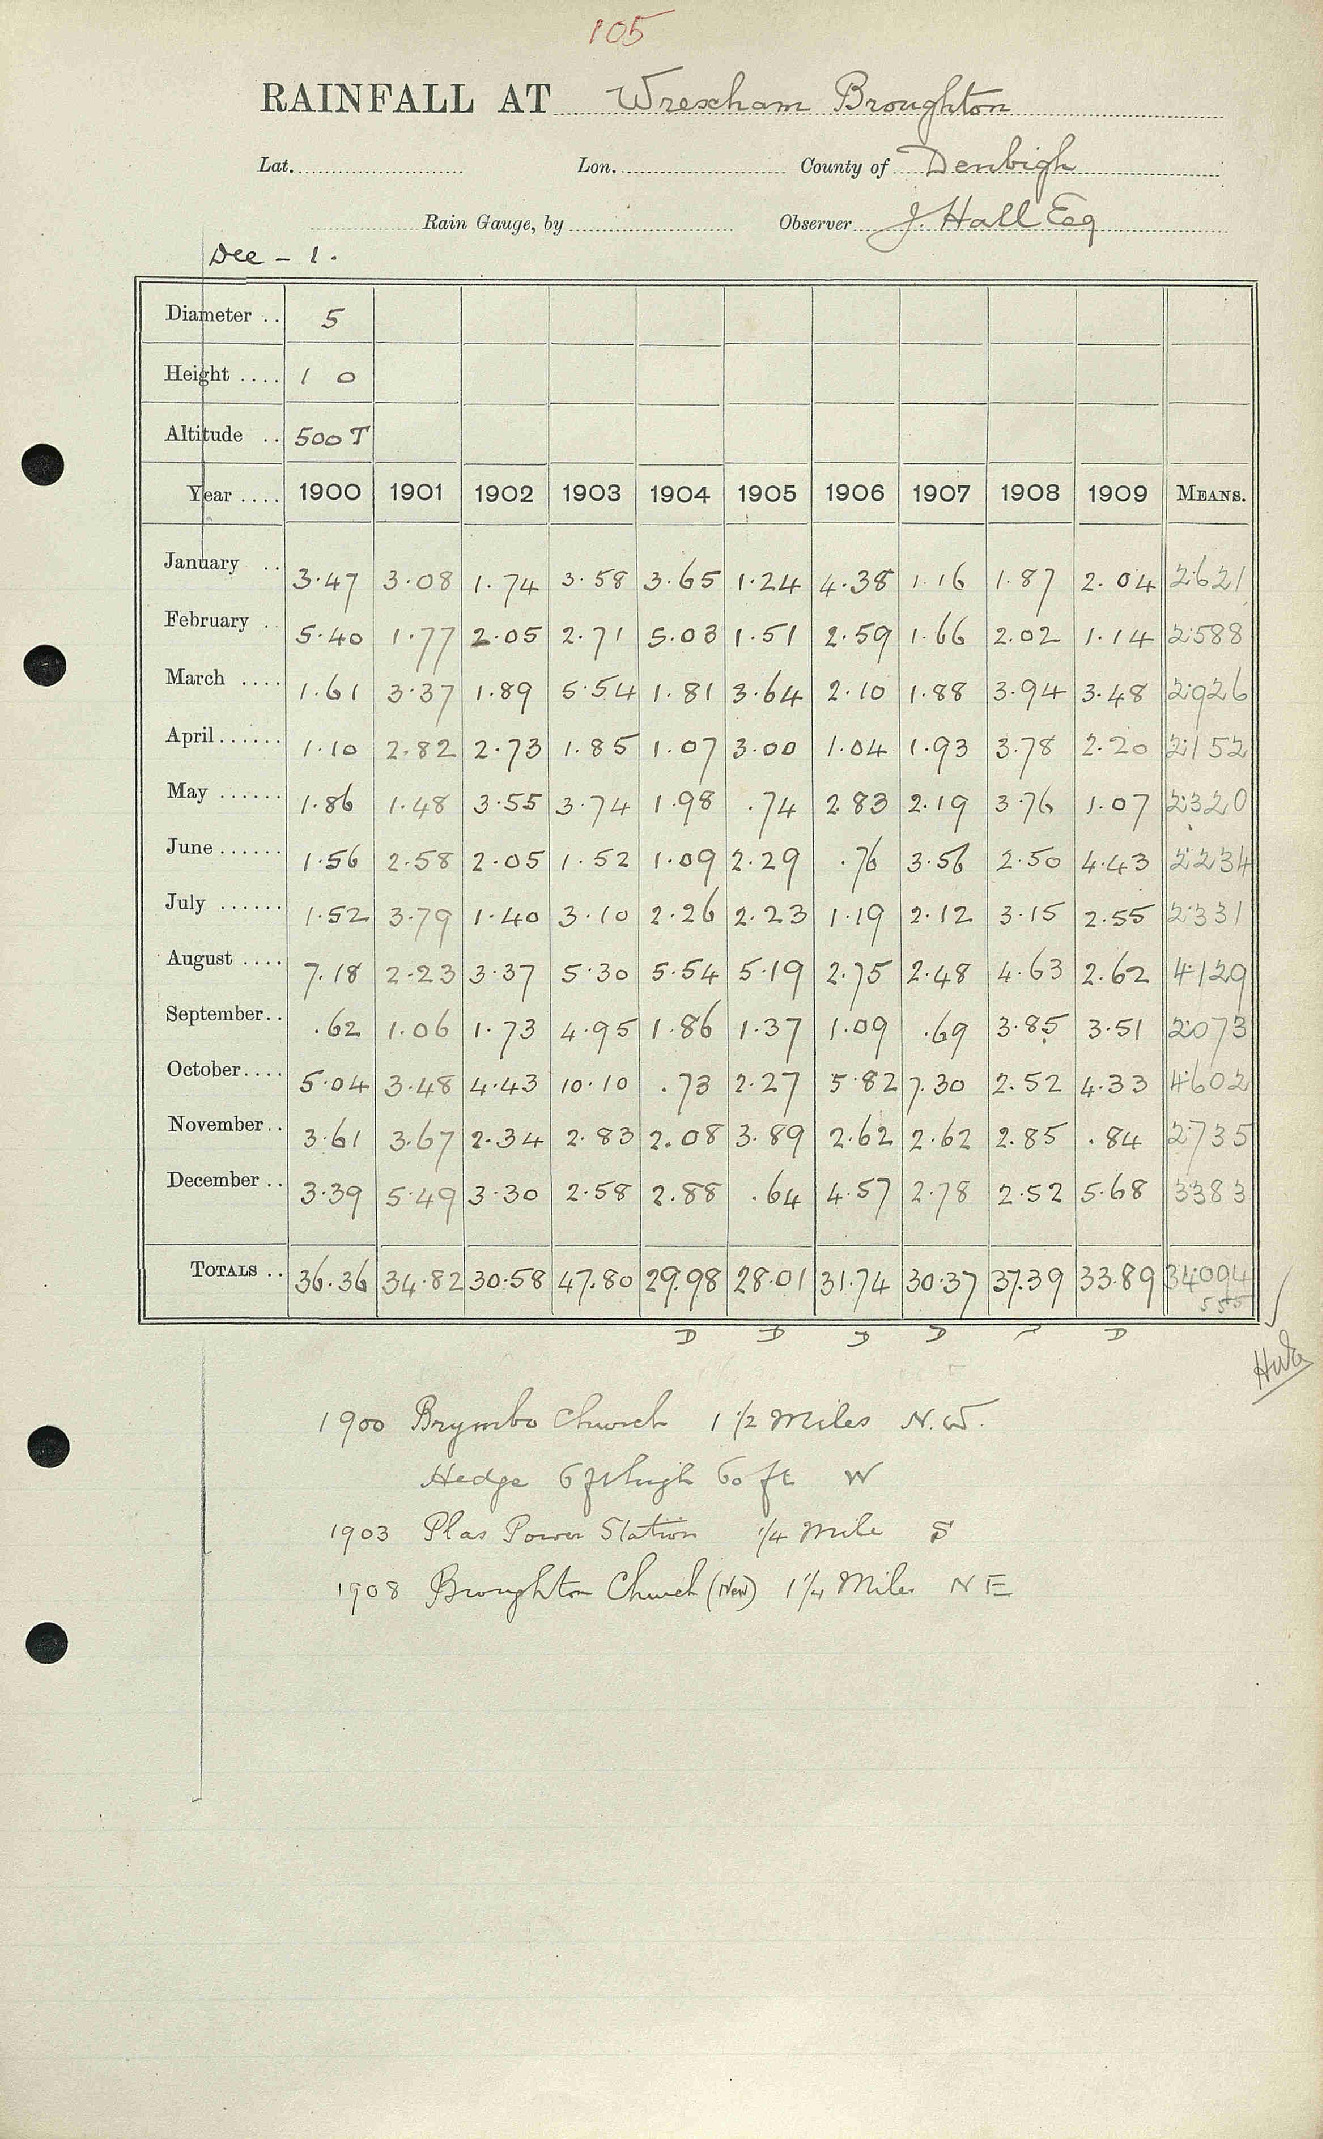 105
RAINFALL AT Wrexham Broughton
Lat. Lon. County of Denbigh
Rain Gauge, by Observer J. Hall Esq
Dee - 1.
Diameter .. 5
Height .... 1 0
Altitude .. 500 T
Year .... 1900 1901 1902 1903 1904 1905 1906 1907 1908 1909 MEANS.
January .. 3.47 3.08 1.74 3.58 3.65 1.24 4.38 1.16 1.87 2.04 2.621
February .. 5.40 1.77 2.05 2.71 5.03 1.51 2.59 1.66 2.02 1.14 2.588
March .... 1.61 3.37 1.89 5.54 1.81 3.64 2.10 1.88 3.94 3.48 2.926
April...... 1.10 2.82 2.73 1.85 1.07 3.00 1.04 1.93 3.78 2.20 2.152
May ...... 1.86 1.48 3.55 3.74 1.98 .74 2.83 2.19 3.76 1.07 2.320
June ...... 1.56 2.58 2.05 1.52 1.09 2.29 .76 3.56 2.50 4.43 2.234
July ...... 1.52 3.79 1.40 3.10 2.26 2.23 1.19 2.12 3.15 2.55 2.331
August .... 7.18 2.23 3.37 5.30 5.54 5.19 2.75 2.48 4.63 2.62 4.129
September.. .62 1.06 1.73 4.95 1.86 1.37 1.09 .69 3.85 3.51 2.073
October.... 5.04 3.48 4.43 10.10 .73 2.27 5.82 7.30 2.52 4.33 4.602
November.. 3.61 3.67 2.34 2.83 2.08 3.89 2.62 2.62 2.85 .84 2.735
December .. 3.39 5.49 3.30 2.58 2.88 .64 4.57 2.78 2.52 5.68 3.383
TOTALS .. 36.36 34.82 30.58 47.80 29.98 28.01 31.74 30.37 37.39 33.89 34.094
D D D D D
1900 Brymbo Church 1 1/2 Miles N.W.
Hedge 6 ft high 60 ft W
1903 Plas Power Station 1/4 mile S
1908 Broughton Church (New) 1 1/4 Miles N E